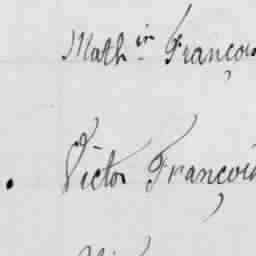 Mathin François
Victor François